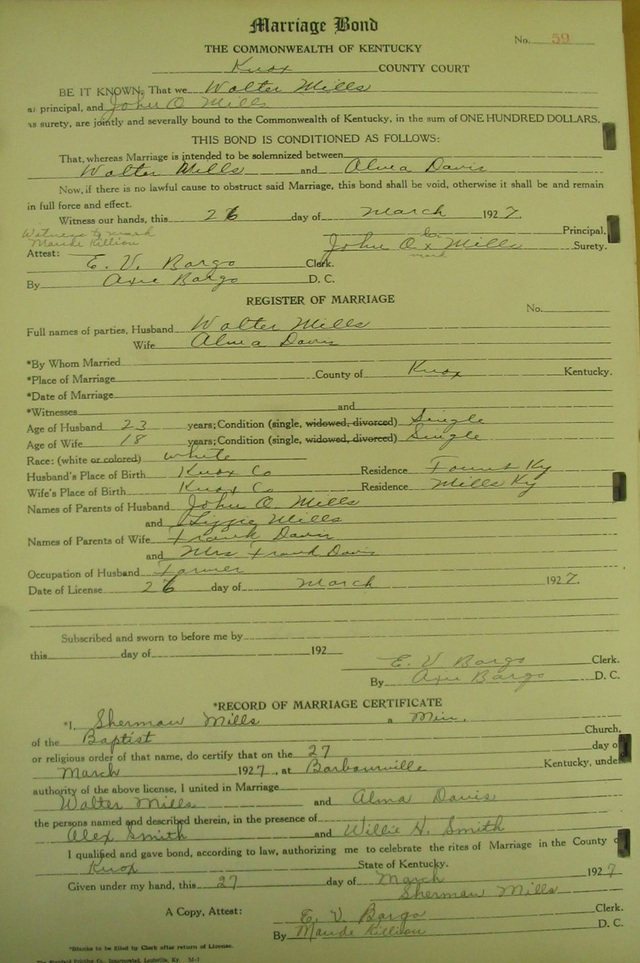 Marriage Bond
No. 59
THE COMMONWEALTH OF KENTUCKY
Knox COUNTY COURT
BE IT KNOWN, That we Walter Mills
as principal, and John O Mills
as surety, are jointly and severally bound to the Commonwealth of Kentucky, in the sum of ONE HUNDRED DOLLARS.
THIS BOND IS CONDITIONED AS FOLLOWS:
That, whereas Marriage is intended to be solemnized between
Walter Mills and Alma Davis
Now, if there is no lawful cause to obstruct said Marriage, this bond shall be void, otherwise it shall be and remain
in full force and effect.
Witness our hands, this 26 day of March 1927.
Witness to mark
Maude Killion
Principal.
his
John O x Mills Surety.
mark
Attest: E. V. Bargo Clerk.
By Axie Bargo D. C.
REGISTER OF MARRIAGE
No.
Full names of parties, Husband Walter Mills
Wife Alma Davis
*By Whom Married
*Place of Marriage County of Knox Kentucky.
*Date of Marriage
*Witnesses and
Age of Husband 23 years; Condition (single, widowed, divorced) Single
Age of Wife 18 years; Condition (single, widowed, divorced) Single
Race: (white or colored) white
Husband's Place of Birth Knox Co Residence Fount Ky
Wife's Place of Birth Knox Co Residence Mills Ky
Names of Parents of Husband John O. Mills
and Lizzie Mills
Names of Parents of Wife Frank Davis
and Mrs Frank Davis
Occupation of Husband Farmer
Date of License 26 day of March 1927.
Subscribed and sworn to before me by
this day of 192
E. V Bargo Clerk.
By Axie Bargo D. C.
*RECORD OF MARRIAGE CERTIFICATE
*I, Sherman Mills a Min.
of the Baptist Church,
or religious order of that name, do certify that on the 27 day of
March 1927, at Barbourville Kentucky, under
authority of the above license, I united in Marriage
Walter Mills and Alma Davis
the persons named and described therein, in the presence of
Alex Smith and Willie H. Smith
I qualified and gave bond, according to law, authorizing me to celebrate the rites of Marriage in the County of
Knox State of Kentucky.
Given under my hand, this 27 day of March 1927
Sherman Mills
A Copy, Attest: E. V. Bargo Clerk.
By Maude Killion D. C.
*Blanks to be filled by Clerk after return of License.
The Standard Printing Co., Incorporated, Louisville, Ky.